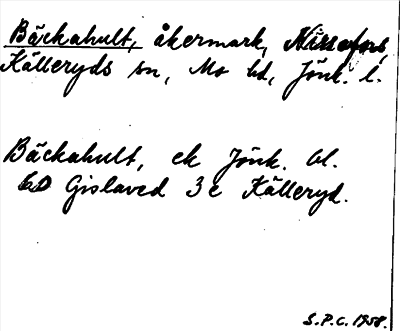 Bäckahult, åkermark, Nissafors,
Kålleryds sn, Mo hd, Jönk. l.
Bäckahult, ek Jönk. bl.
6D Gislaved 3e Kålleryd.
S.P.C. 1958.